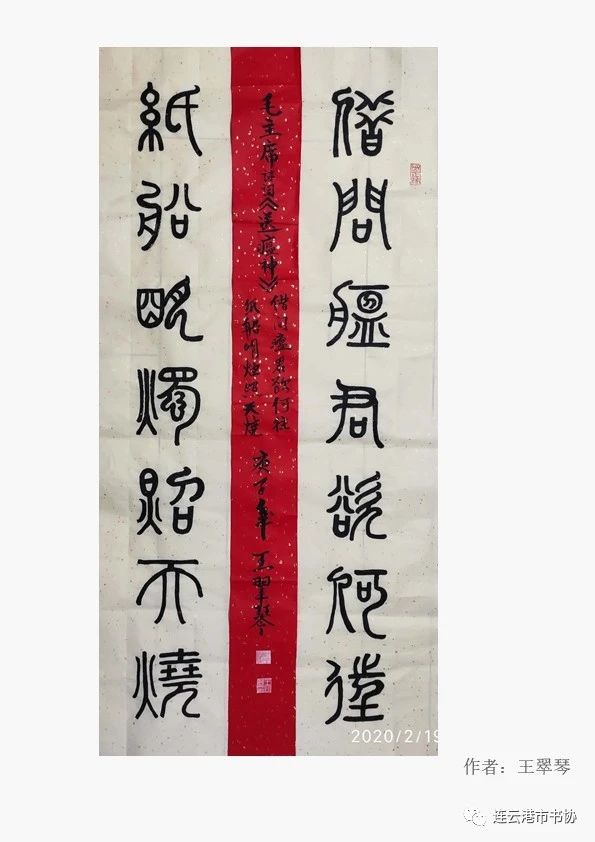 借問瘟君欲何往
毛主席诗词《送瘟神》
借问瘟君欲何往
纸船明烛照天烧
庚子年 王翠琴
紙船明燭照天燒
2020/2/19
作者：王翠琴
连云港市书协